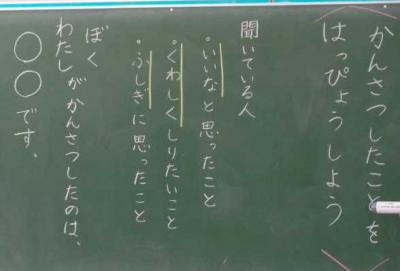 かんさつしたことを
はっぴょうしよう
聞いている人
・いいなと思ったこと
・くわしくしりたいこと
・ふしぎに思ったこと
ぼく
わたしがかんさつしたのは、
○○です。